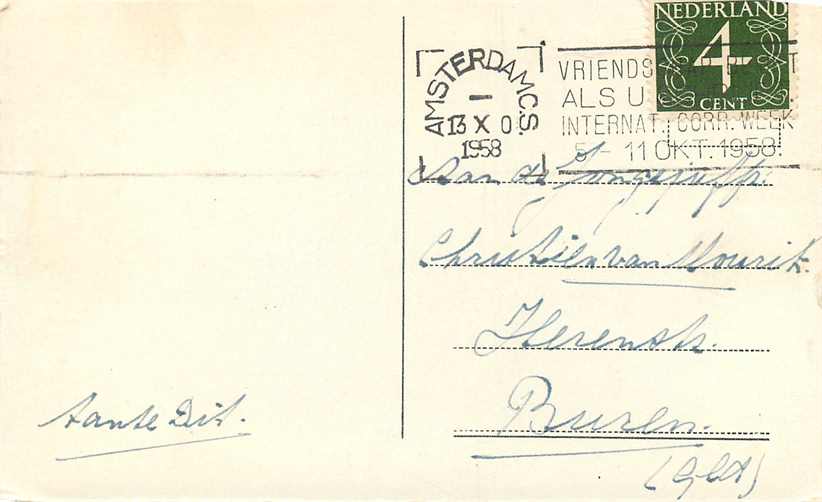 NEDERLAND
4
CENT
AMSTERDAM C.S.
13 X 0
1958
VRIENDS
ALS U
INTERNAT. CORR. WEEK
5 - 11 OKT. 1958.
Aan de Jongejuffr.
Christien van Mourik.
Herenstr.
Buren.
(Gld)
tante Dit.